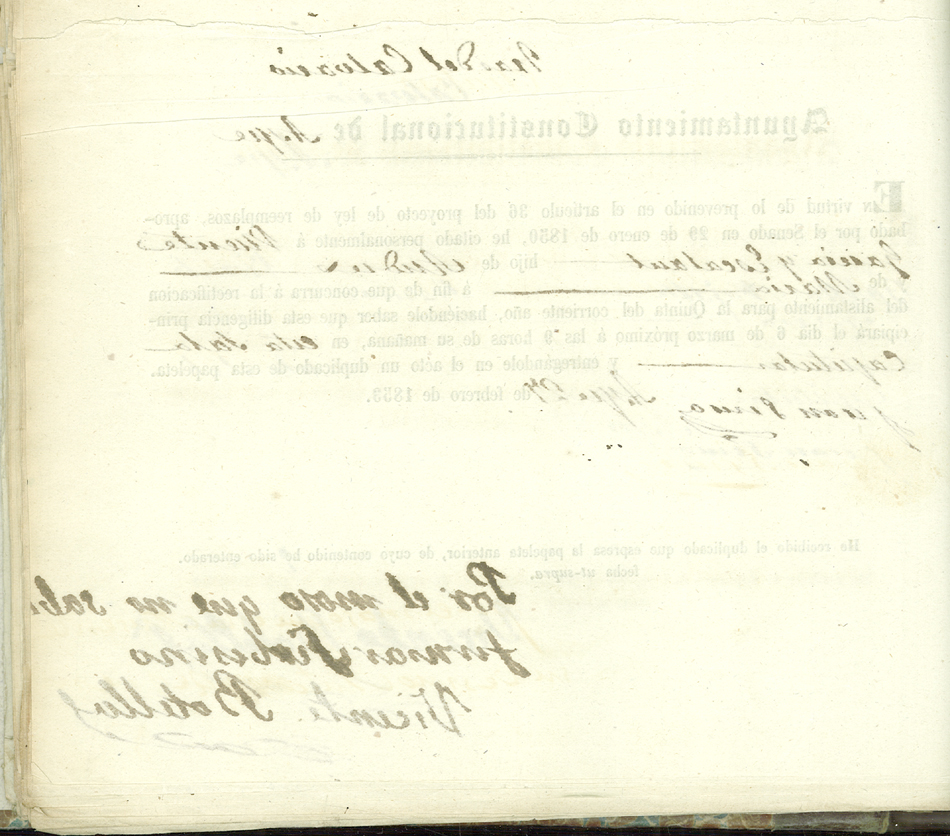 del Calvario
Ayuntamiento Constitucional de Aspe
EN virtud de lo prevenido en el artículo 36 del proyecto de ley de reemplazos, apro-
bado por el Senado en 29 de enero de 1850, he citado personalmente á Vicente
Garcia y Escolano hijo de
y de Maria á fin de que concurra á la rectificacion
del alistamiento para la Quinta del corriente año, haciéndole saber que esta diligencia prin-
cipiará el dia 6 de marzo próximo á las 9 horas de su mañana, en esta Sala
Capitular y entregándole en el acto un duplicado de esta papeleta.
Aspe 27 de febrero de 1853.
Juan
Ha recibido el duplicado que espresa la papeleta anterior, de cuyo contenido ha sido enterado.
fecha ut-supra.
Por el moso que no sabe
firmar
Vicente Botella